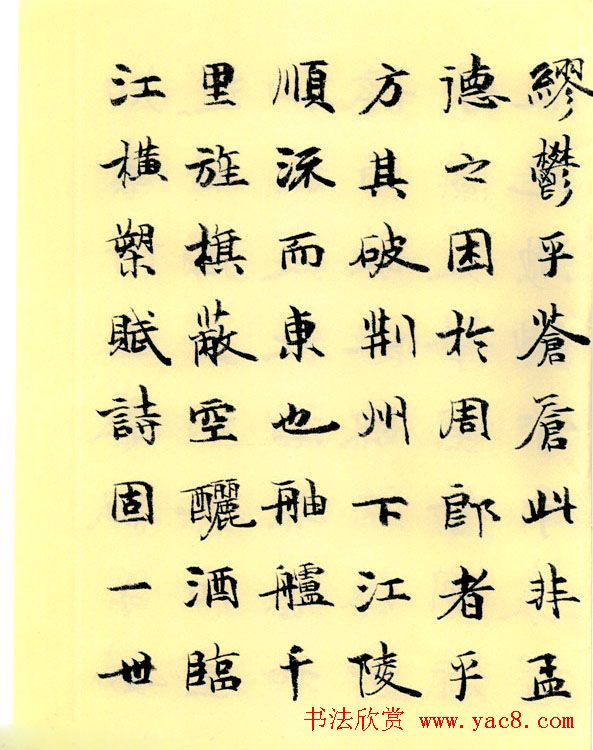 繆鬱乎蒼蒼此非孟
德之困於周郎者乎
方其破荆州下江陵
順流而東也舳艫千
里旌旗蔽空釃酒臨
江橫槊賦詩固一世
书法欣赏 www.yac8.com